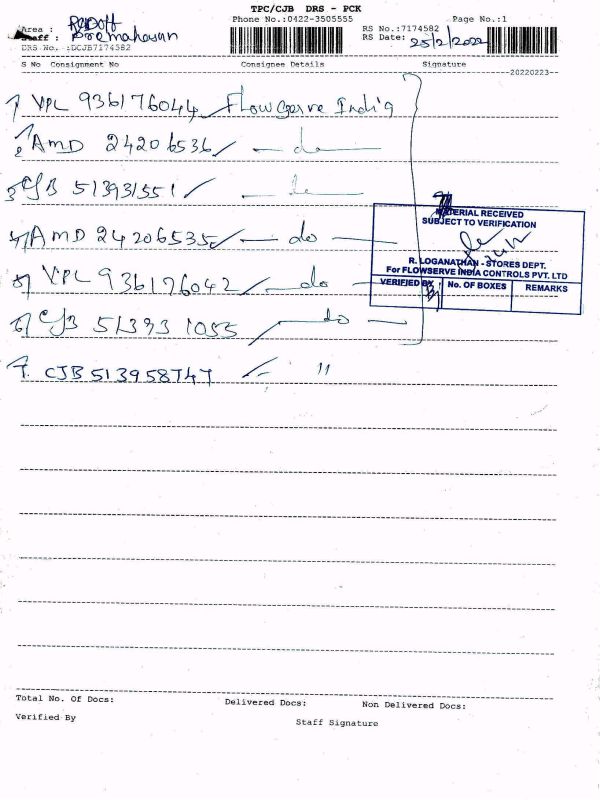 TPC/CJB DRS - PCK
Phone No.:0422-3505555 Page No.:1
Area :
Staff : Premahasan
RS No.:7174582
RS Date: 25/2/2022
DRS No. :DCJB7174582
S No Consignment No Consignee Details Signature
20220223
1) VPL 936176044 Flowserve India
2) AMD 24206536 — do —
3) CJB 513931551 — do —
4) AMD 24206535 — do —
5) VPL 936176042 — do —
6) CJB 513931055 — do —
7. CJB 513958747 — "
MATERIAL RECEIVED
SUBJECT TO VERIFICATION
R. LOGANATHAN - STORES DEPT.
For FLOWSERVE INDIA CONTROLS PVT. LTD
VERIFIED BY No. OF BOXES REMARKS
Total No. Of Docs: Delivered Docs: Non Delivered Docs:
Verified By Staff Signature